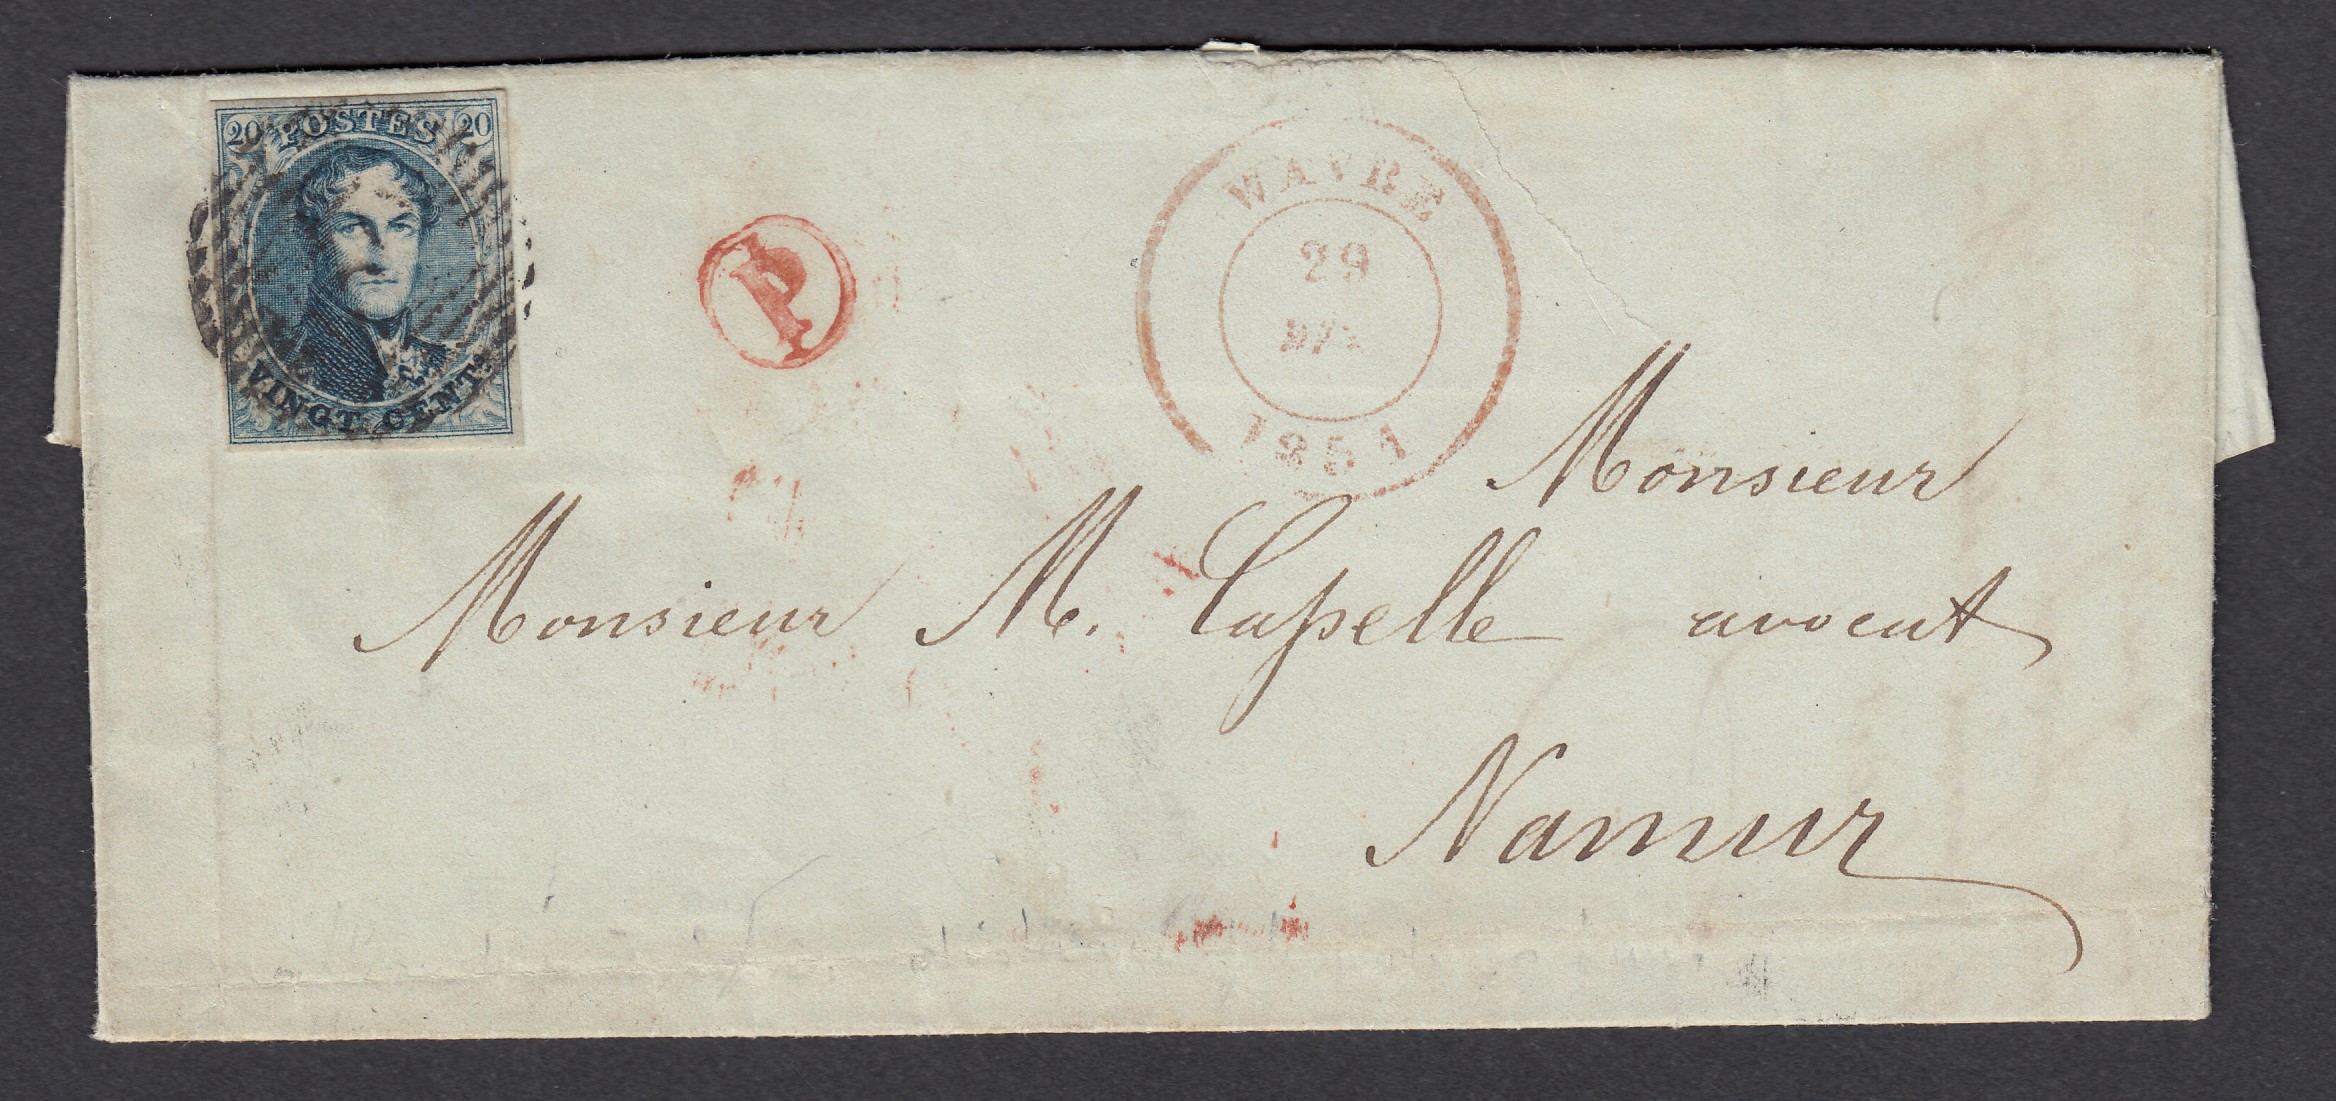 20 POSTES 20
VINGT CENT.
P
WAVRE
29
1851
Monsieur
Monsieur M. Capelle avocat
Namur